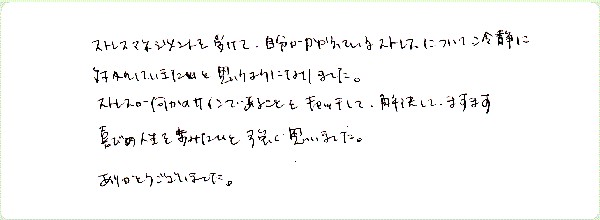 ストレスマネジメントを受けて、自分がかかえているストレスについて冷静に
対処していきたいと思うようになりました。
ストレスが何かのサインであることをキャッチして、解決して、ますます
喜びの人生を歩みたいと強く思いました。
ありがとうございました。